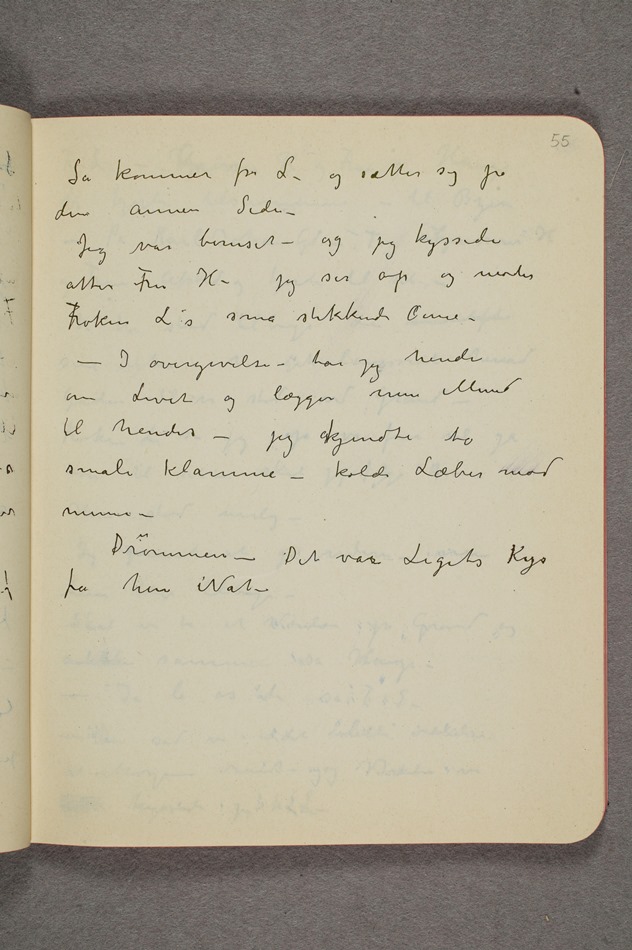 55
Så kommer frk L – og sætter sig på
den annen Side –
Jeg var beruset – og jeg kyssede
atter Fru H – jeg ser op og møder
Frøken L's små stikkende Øine –
– I overgivelse – tar jeg hende
om Livet og lægger min Mund
til hendes – jeg kjendte to
smale klamme – kolde Læber mod
mine –
Drömmen – Det var Ligets Kys
fra hin Nat –